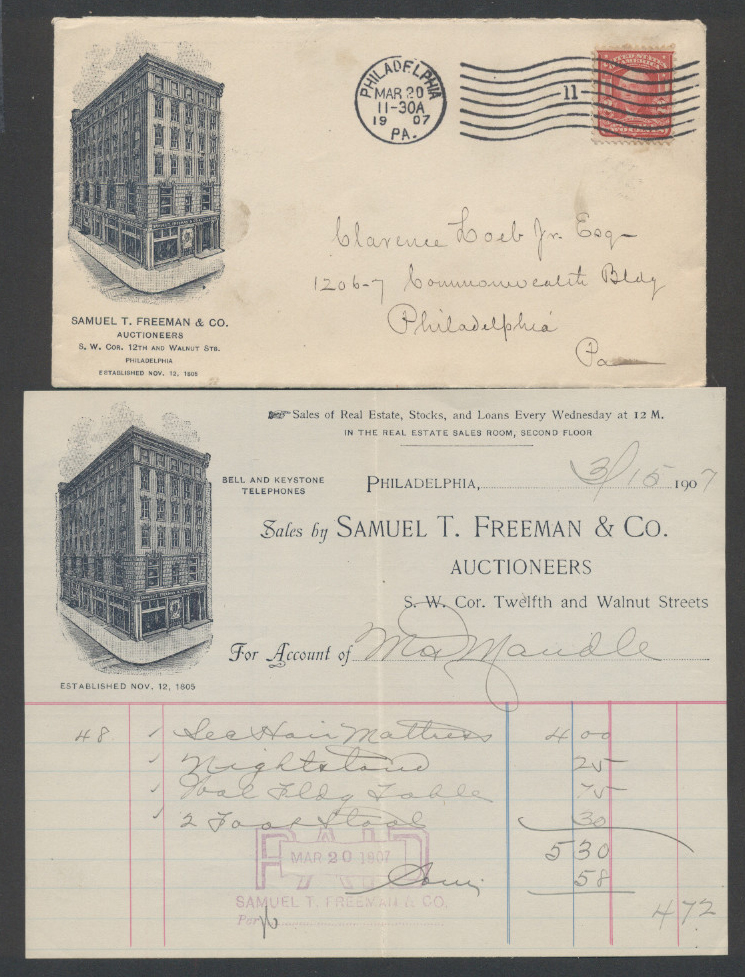 PHILADELPHIA
MAR 20
11-30A
19 07
PA.
11
UNITED STATES
OF AMERICA
Clarence Loeb Jr. Esq-
1206-7 Commonwealth Bldg
Philadelphia
Pa
SAMUEL T. FREEMAN & CO.
AUCTIONEERS
S. W. COR. 12TH AND WALNUT STS.
PHILADELPHIA
ESTABLISHED NOV. 12, 1805
Sales of Real Estate, Stocks, and Loans Every Wednesday at 12 M.
IN THE REAL ESTATE SALES ROOM, SECOND FLOOR
BELL AND KEYSTONE
TELEPHONES
PHILADELPHIA, 3/15 1907
Sales by SAMUEL T. FREEMAN & CO.
AUCTIONEERS
S. W. Cor. Twelfth and Walnut Streets
For Account of Mandle
ESTABLISHED NOV. 12, 1805
48 Hair Mattress 4 00
Nightstand 25
Fldg Table 75
2 Foot Stool 30
5 30
58
4 72
PAID
MAR 20 1907
SAMUEL T. FREEMAN & CO.
Per